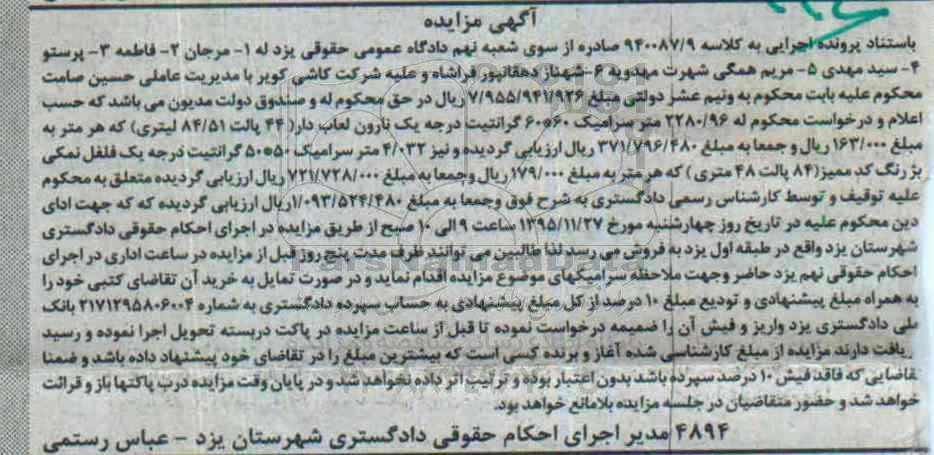 آگهی مزایده
باستناد پرونده اجرایی به کلاسه ۹۴۰۰۸۷/۹ صادره از سوی شعبه نهم دادگاه عمومی حقوقی یزد له ۱- مرجان ۲- فاطمه ۳- پرستو
۴- سید مهدی ۵- مریم همگی شهرت مهدویه ۶-شهناز دهقانپور فراشاه و علیه شرکت کاشی کویر با مدیریت عاملی حسین صامت
محکوم علیه بابت محکوم به ونیم عشر دولتی مبلغ ۷/۹۵۵/۹۴۱/۹۲۶ ریال در حق محکوم له و صندوق دولت مدیون می باشد که حسب
اعلام و درخواست محکوم له ۲۲۸۰/۹۶ متر سرامیک ۶۰*۶۰ گرانتیت درجه یک نارون لعاب دار( ۴۴ پالت ۸۴/۵۱ لیتری) که هر متر به
مبلغ ۱۶۳/۰۰۰ ریال و جمعا به مبلغ ۳۷۱/۷۹۶/۴۸۰ ریال ارزیابی گردیده و نیز ۴/۰۳۲ متر سرامیک ۵۰*۵۰ گرانتیت درجه یک فلفل نمکی
بژ رنگ کد ممیز(۸۴ پالت ۴۸ متری ) که هر متر به مبلغ ۱۷۹/۰۰۰ ریال وجمعا به مبلغ ۷۲۱/۷۲۸/۰۰۰ ریال ارزیابی گردیده متعلق به محکوم
علیه توقیف و توسط کارشناس رسمی دادگستری به شرح فوق وجمعا به مبلغ ۱/۰۹۳/۵۲۴/۴۸۰ریال ارزیابی گردیده که که جهت ادای
دین محکوم علیه در تاریخ روز چهارشنبه مورخ ۱۳۹۵/۱۱/۲۷ ساعت ۹ الی ۱۰ صبح از طریق مزایده در اجرای احکام حقوقی دادگستری
شهرستان یزد واقع در طبقه اول یزد به فروش می رسد لذا طالبین می توانند ظرف مدت پنج روز قبل از مزایده در ساعت اداری در اجرای
احکام حقوقی نهم یزد حاضر وجهت ملاحظه سرامیکهای موضوع مزایده اقدام نماید و در صورت تمایل به خرید آن تقاضای کتبی خود را
به همراه مبلغ پیشنهادی و تودیع مبلغ ۱۰ درصد از کل مبلغ پیشنهادی به حساب سپرده دادگستری به شماره ۲۱۷۱۲۹۵۸۰۶۰۰۴ بانک
ملی دادگستری یزد واریز و فیش آن را ضمیمه درخواست نموده تا قبل از ساعت مزایده در پاکت دربسته تحویل اجرا نموده و رسید
ریافت دارند مزایده از مبلغ کارشناسی شده آغاز و برنده کسی است که بیشترین مبلغ را در تقاضای خود پیشنهاد داده باشد و ضمنا
قاضایی که فاقد فیش ۱۰ درصد سپرده باشد بدون اعتبار بوده و ترتیب اثر داده نخواهد شد و در پایان وقت مزایده درب پاکتها باز و قرائت
خواهد شد و حضور متقاضیان در جلسه مزایده بلامانع خواهد بود.
۴۸۹۴ مدیر اجرای احکام حقوقی دادگستری شهرستان یزد - عباس رستمی